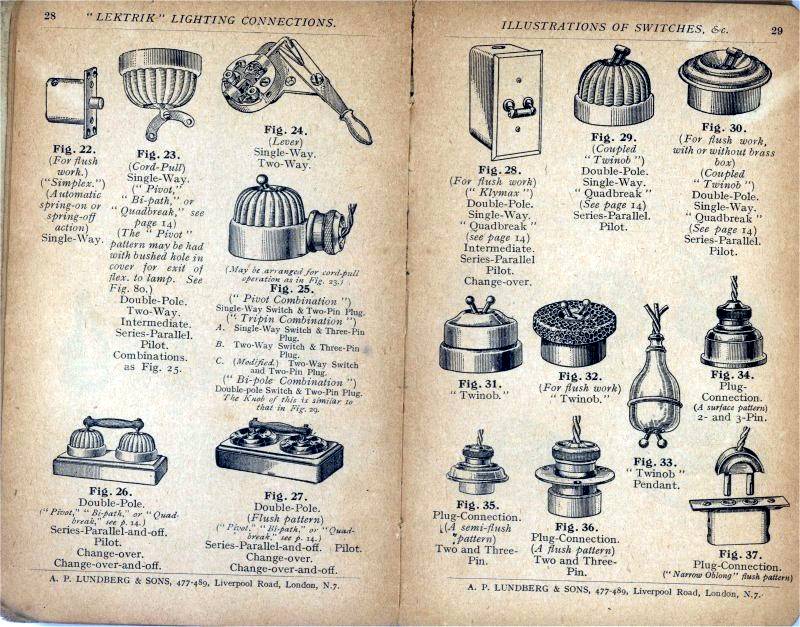 28
"LEKTRIK" LIGHTING CONNECTIONS.
Fig. 22.
(For flush
work.)
("Simplex.")
(Automatic
spring-on or
spring-off
action)
Single-Way.
Fig. 23.
(Cord-Pull)
Single-Way.
("Pivot,"
"Bi-path," or
"Quadbreak," see
page 14)
(The "Pivot"
pattern may be had
with bushed hole in
cover for exit of
flex. to lamp. See
Fig. 80.)
Double-Pole.
Two-Way.
Intermediate.
Series-Parallel.
Pilot.
Combinations.
as Fig. 25.
Fig. 24.
(Lever)
Single-Way.
Two-Way.
(May be arranged for cord-pull
operation as in Fig. 23.)
Fig. 25.
("Pivot Combination")
Single-Way Switch & Two-Pin Plug.
("Tripin Combination")
A. Single-Way Switch & Three-Pin
Plug.
B. Two-Way Switch & Three-Pin
Plug.
C. (Modified.) Two-Way Switch
and Two-Pin Plug.
("Bi-pole Combination")
Double-pole Switch & Two-Pin Plug.
The Knob of this is similar to
that in Fig. 29.
Fig. 26.
Double-Pole.
("Pivot," "Bi-path," or "Quad-
break," see p. 14.)
Series-Parallel-and-off.
Pilot.
Change-over.
Change-over-and-off.
Fig. 27.
Double-Pole.
(Flush pattern)
("Pivot," "Bi-path," or "Quad-
break," see p. 14.)
Series-Parallel-and-off. Pilot.
Change-over.
Change-over-and-off.
A. P. LUNDBERG & SONS, 477-489, Liverpool Road, London, N.7.
ILLUSTRATIONS OF SWITCHES, &c.
29
Fig. 28.
(For flush work)
("Klymax")
Double-Pole.
Single-Way.
"Quadbreak"
(see page 14)
Intermediate.
Series-Parallel
Pilot.
Change-over.
Fig. 29.
(Coupled
"Twinob")
Double-Pole.
Single-Way.
"Quadbreak"
(See page 14)
Series-Parallel.
Pilot.
Fig. 30.
(For flush work,
with or without brass
box)
(Coupled
"Twinob")
Double-Pole.
Single-Way.
"Quadbreak"
(See page 14)
Series-Parallel.
Pilot.
Fig. 31.
"Twinob."
Fig. 32.
(For flush work)
"Twinob."
Fig. 33.
"Twinob"
Pendant.
Fig. 34.
Plug-
Connection.
(A surface pattern)
2- and 3-Pin.
Fig. 35.
Plug-Connection.
(A semi-flush
pattern)
Two and Three-
Pin.
Fig. 36.
Plug-Connection.
(A flush pattern)
Two and Three-
Pin.
Fig. 37.
Plug-Connection.
("Narrow Oblong" flush pattern)
A. P. LUNDBERG & SONS, 477-489, Liverpool Road, London, N.7.